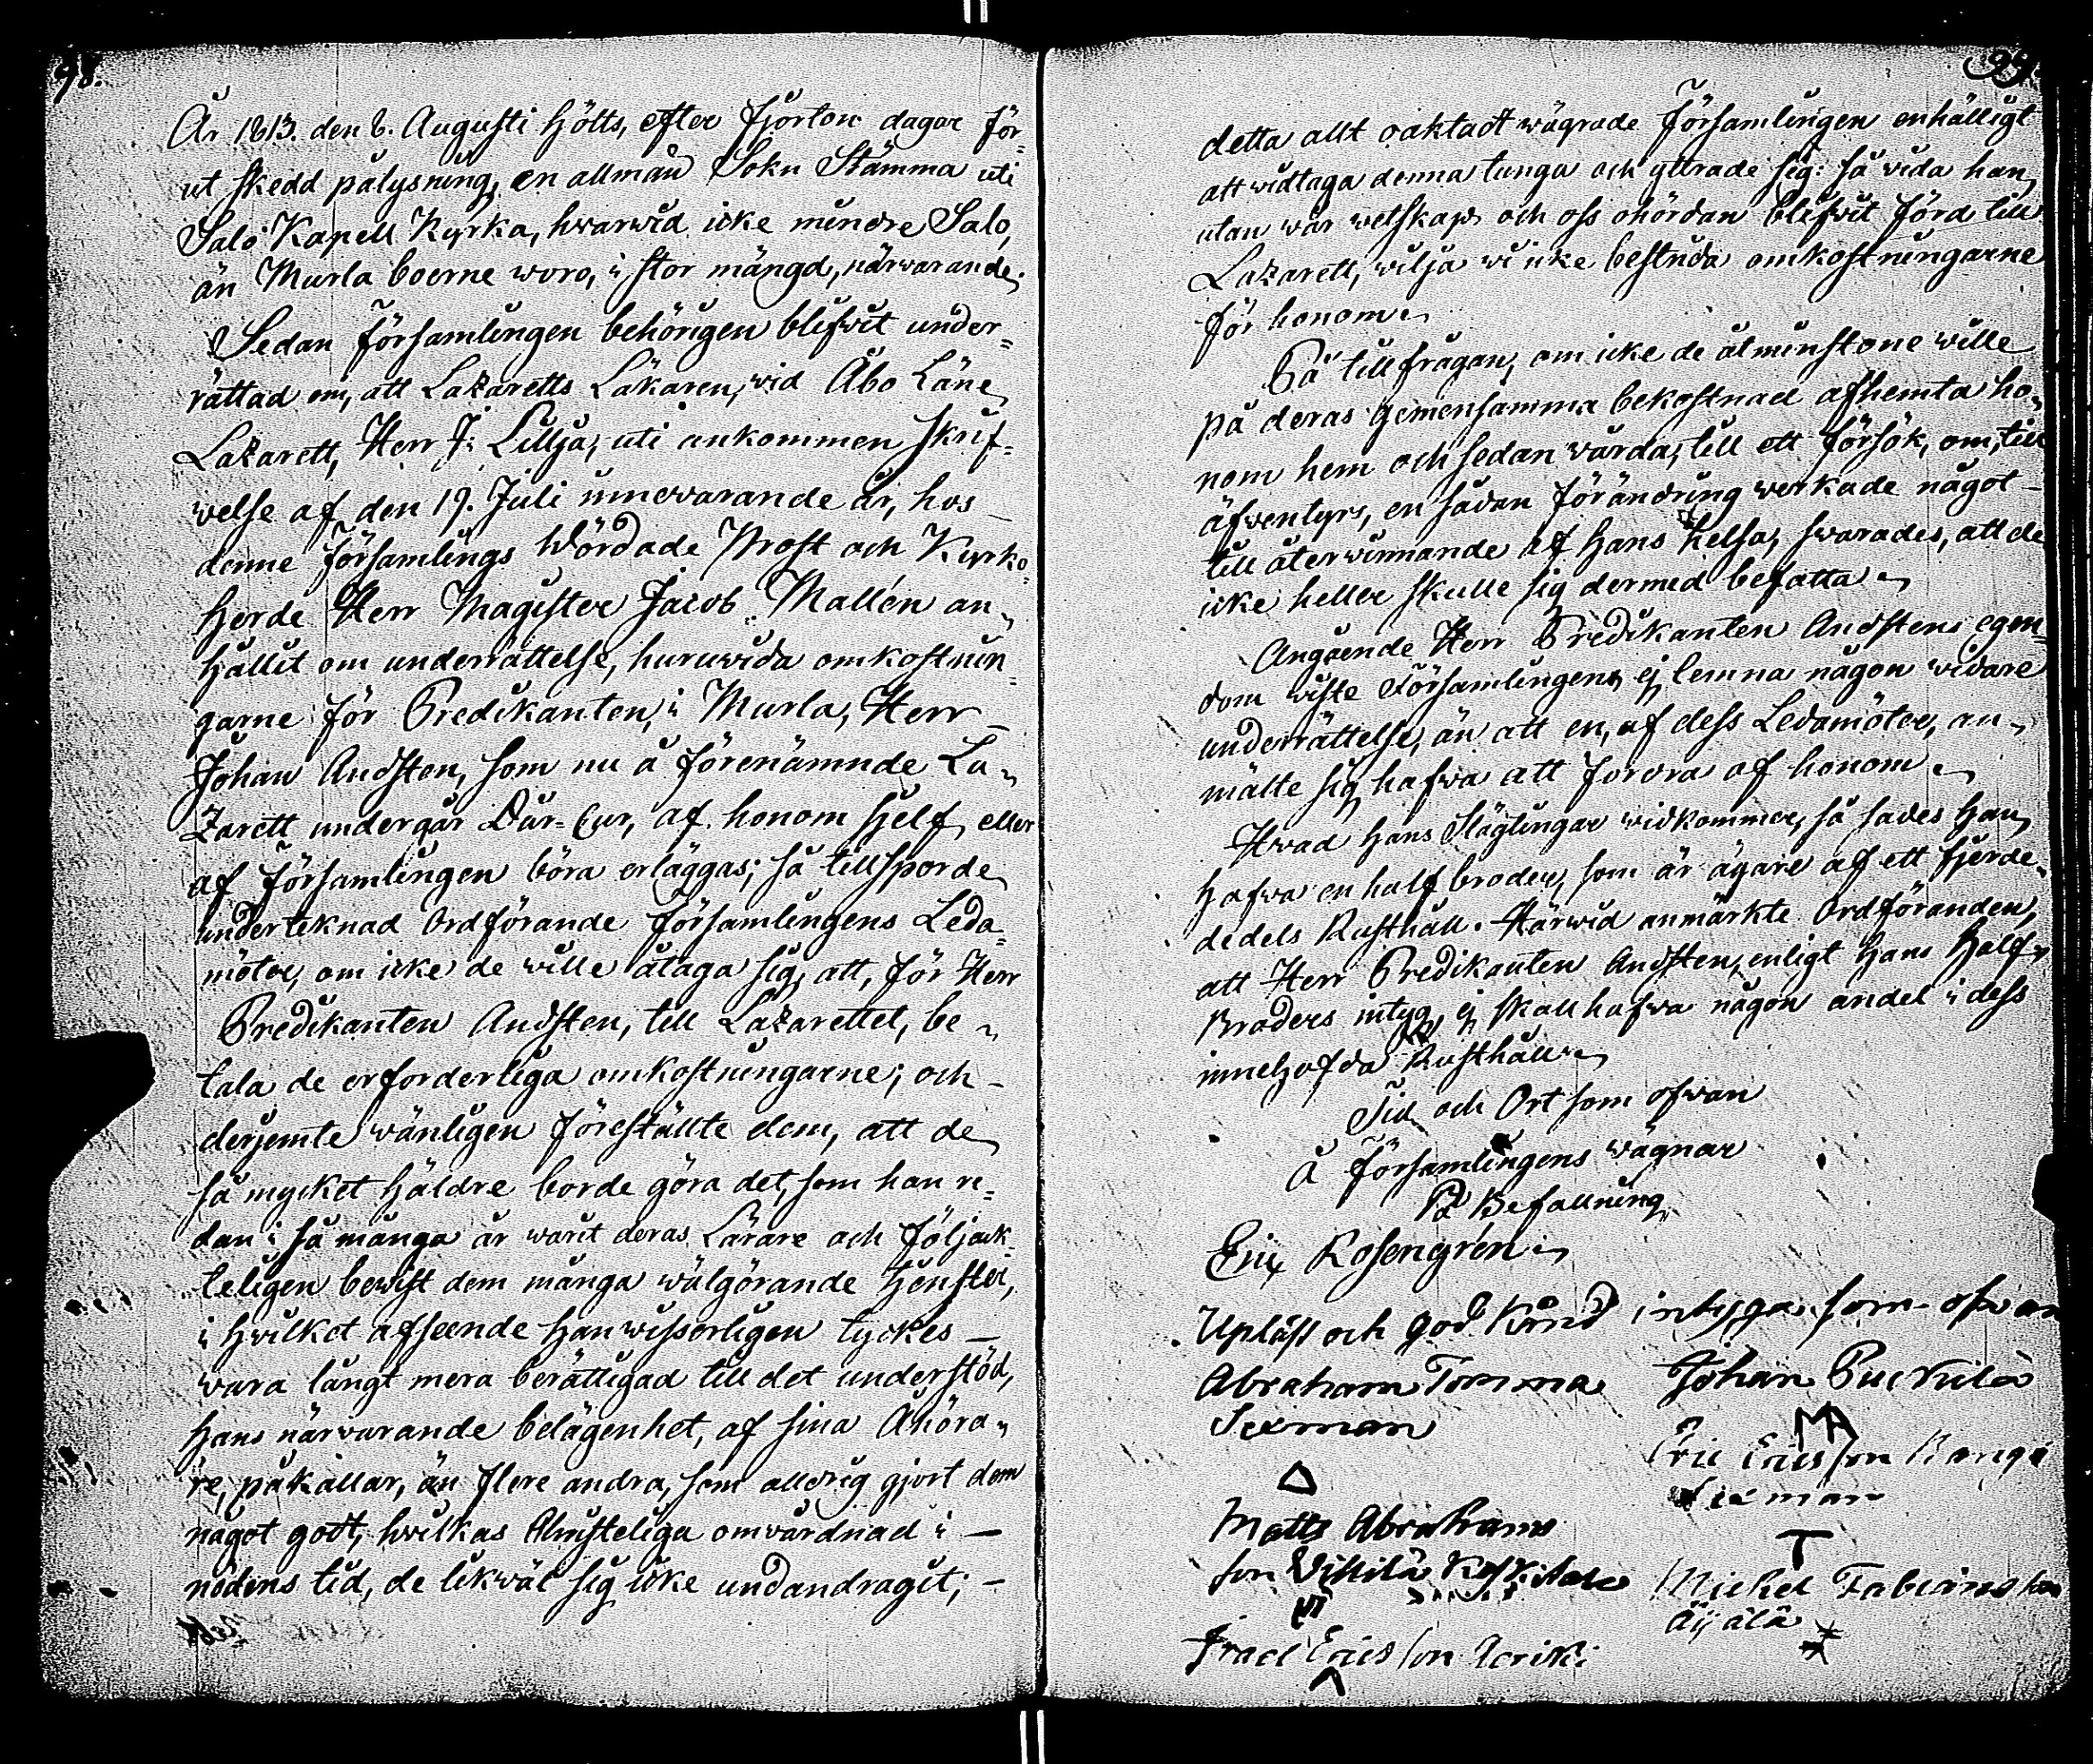 98.
År 1813. den 8. Augusti hölts, efter fjorton dagar för-
ut skedd pålysning, en allmän Sokn Stämma uti
Salo Kapell Kyrka, hwarwid icke mindre Salo,
än Murla boerne woro, i stor mängd, närwarande.
Sedan Församlingen behörigen blifwit under-
rättad om, att Lazaretts Läkaren, wid Åbo Läne
Lazarett, Herr J: Lillja, uti ankommen skrif-
welse af den 19. Juli innewarande år, hos
denne Församlings Wördade Prost och Kyrko-
herde Herr Magister Jacob Mallén an-
hållit om underrättelse, huruwida omkostnin-
garne för Predikanten, i Murla, Herr
Johan Andsten, som nu å förenämnde La-
zarett undergår Dår-Cur, af honom sjelf, eller
af Församlingen böra erläggas; så tillsporde
underteknad Ordförande Församlingens Leda-
möter, om icke de wille åtaga sig att, för Herr
Predikanten Andsten, till Lazarettet, be-
tala de erforderliga omkostningarne; och
derjemte wänligen föreställte dem, att de
så mycket häldre borde göra det, som han re-
dan i så många år warit deras Lärare och följack-
teligen bewist dem många wälgörande tjenster,
i hwilket afseende han wisserligen tyckes
wara långt mera berättigad till det understöd,
hans närwarande belägenhet, af sina Åhöra-
re, påkallar, än flere andra, som aldrig gjort dem
något gott, hwilkas Christeliga omwårdnad i
nödens tid, de likwäl sig icke undandragit; -
99.
detta allt oaktadt wägrade Församlingen enhälligt
att widtaga denna tunga och yttrade sig: så wida han,
utan wår wetskap och oss ohördan blifwit förd till
Lazarett, wilja wi icke bestrida omkostningarne
för honom.
På tillfrågan, om icke de åtminstone wille
på deras gemensamma bekostnad afhemta ho-
nom hem och sedan wårda, till ett försök, om, till
äfwentyrs, en sådan förändring werkade något
till återwinnande af hans helsa, swarades, att de
icke heller skulle sig dermed befatta.
Angående Herr Predikanten Andstens egen-
dom wiste Församlingen ej lemna någon widare
underrättelse, än att en, af dess Ledamöter, an-
mälte sig hafwa att fordra af honom.
Hwad hans Släglingar widkommer, så sades han
hafwa en half broder, som är ägare af ett fjerde-
dedels Rusthåll. Härwid anmärkte Ordföranden,
att Herr Predikanten Andsten, enligt hans Half-
Broders intyg, ej skall hafwa någon andel i dess
innehafda Rusthåll.
Tid och Ort som ofwan
å Församlingens wägnar
På Befallning
Eric Rosengrén.
Upläst och god känd intygar som ofwan
Abraham Tomma Johan Puckila
Sexman
Eric Ericsson
Sexman
Matts Abrahams
son
Michel Fabianson
Äijälä
Israel Ericsson